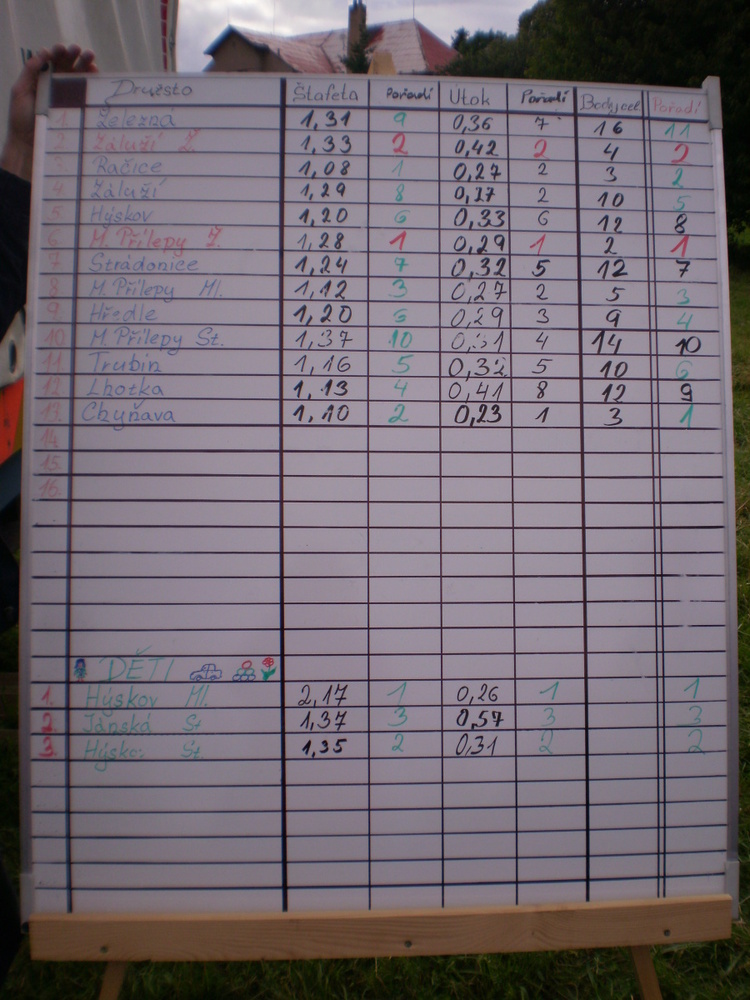 Družstvo Štafeta Pořadí Útok Pořadí Body cel. Pořadí
1. Železná 1,31 9 0,36 7 16 11
2. Záluží Ž. 1,33 2 0,42 2 4 2
3. Račice 1,08 1 0,27 2 3 2
4. Záluží 1,29 8 0,27 2 10 5
5. Hýskov 1,20 6 0,33 6 12 8
6. M. Přílepy Ž. 1,28 1 0,29 1 2 1
7. Strádonice 1,24 7 0,32 5 12 7
8. M. Přílepy Ml. 1,12 3 0,27 2 5 3
9. Hředle 1,20 6 0,29 3 9 4
10. M. Přílepy St. 1,37 10 0,31 4 14 10
11. Trubín 1,16 5 0,32 5 10 6
12. Lhotka 1,13 4 0,41 8 12 9
13. Chyňava 1,10 2 0,23 1 3 1
14.
15.
16.
DĚTI
1. Hýskov Ml. 2,17 1 0,26 1 1
2. Jánská St 1,37 3 0,57 3 3
3. Hýskov St. 1,35 2 0,31 2 2